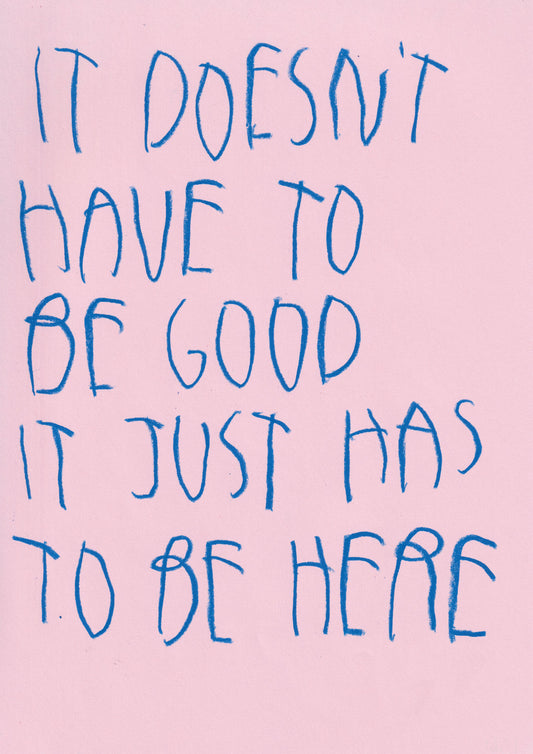 IT DOESN'T
HAVE TO
BE GOOD
IT JUST HAS
TO BE HERE